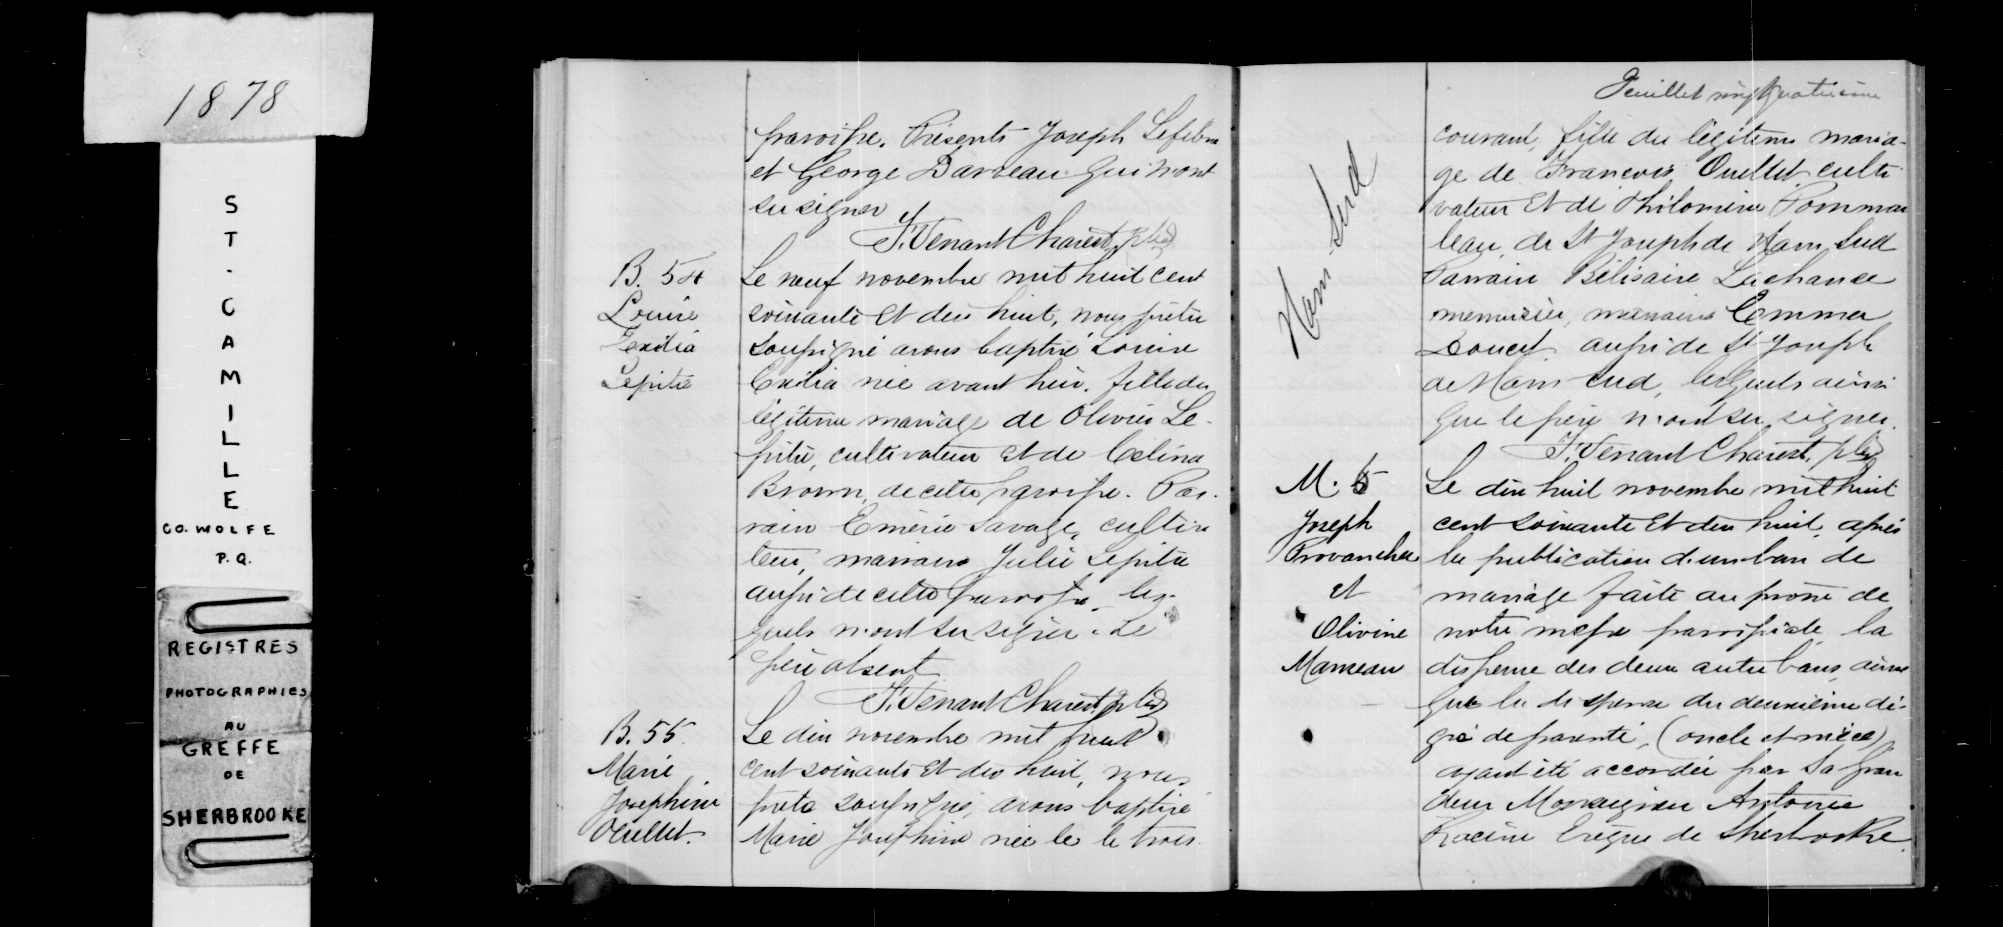 1878
ST. CAMILLE
CO. WOLFE
P.Q.
REGISTRES
PHOTOGRAPHIES
AU
GREFFE
DE
SHERBROOKE
paroisse. Présents Joseph Lefebvre
et George Darveau qui n'ont
su signer
F. Venant Charest ptre
B. 54
Louise
Exilia
Lepitre
Le neuf novembre mil huit cent
soixante et dix huit, nous prêtre
soussigné avons baptisé Louise
Exilia née avant hier, fille du
légitime mariage de Olivier Le-
pitre, cultivateur et de Celina
Brown, de cette paroisse. Par-
rain Emérie Savage, cultiva
teur, marraine Julie Lepitre
aussi de cette paroisse, les-
quels n'ont su signer. Le
père absent
F. Venant Charest ptre
B. 55
Marie
Josephine
Ouellet.
Le dix novembre mil huit
cent soixante et dix huit, nous
prêtre soussigné, avons baptisé
Marie Josephine née le le trois
Feuillet vingt quatrième
Ham Sud
courant, fille du légitime maria-
ge de Francois Ouellet culti-
vateur et de Philomène Pommer
leau, de St Joseph de Ham Sud
Parrain Bélisaire Lachance
menuisier, marraine Emma
Doucet aussi de St Joseph
de Ham sud, lesquels ainsi
que le père n'ont su signer.
F. Venant Charest, ptre
M. 5
Joseph
Provancher
et
Olivine
Manseau
Le dix huit novembre mil huit
cent soixante et dix huit, après
la publication d'un ban de
mariage faite au prône de
notre messe paroissiale, la
dispense des deux autre bans, ainsi
que la dispense du deuxième dé-
gré de parenté, (oncle et nièce)
ayant été accordée par Sa Gran
deur Monseigneur Antoine
Racine Evêque de Sherbrooke